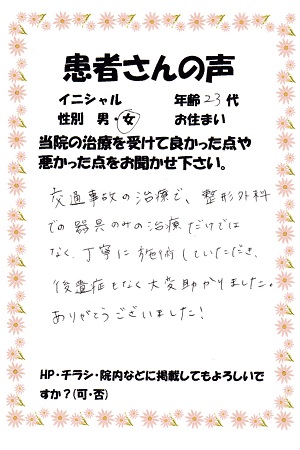 患者さんの声
イニシャル 年齢 23 代
性別 男・女 お住まい
当院の治療を受けて良かった点や
悪かった点をお聞かせ下さい。
交通事故の治療で、整形外科
での器具のみの治療だけでは
なく、丁寧に施術していただき、
後遺症もなく大変助かりました。
ありがとうございました!
HP・チラシ・院内などに掲載してもよろしいで
すか?(可・否)